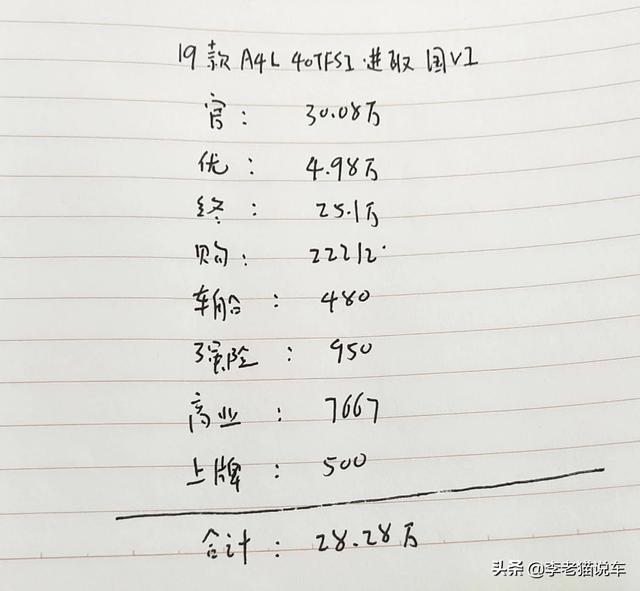 19款 A4L 40TFSI 进取 国VI
官: 30.08万
优: 4.98万
终: 25.1万
购: 22212
车船: 480
强险: 950
商业: 7667
上牌: 500
合计: 28.28万
头条 @李老猫说车